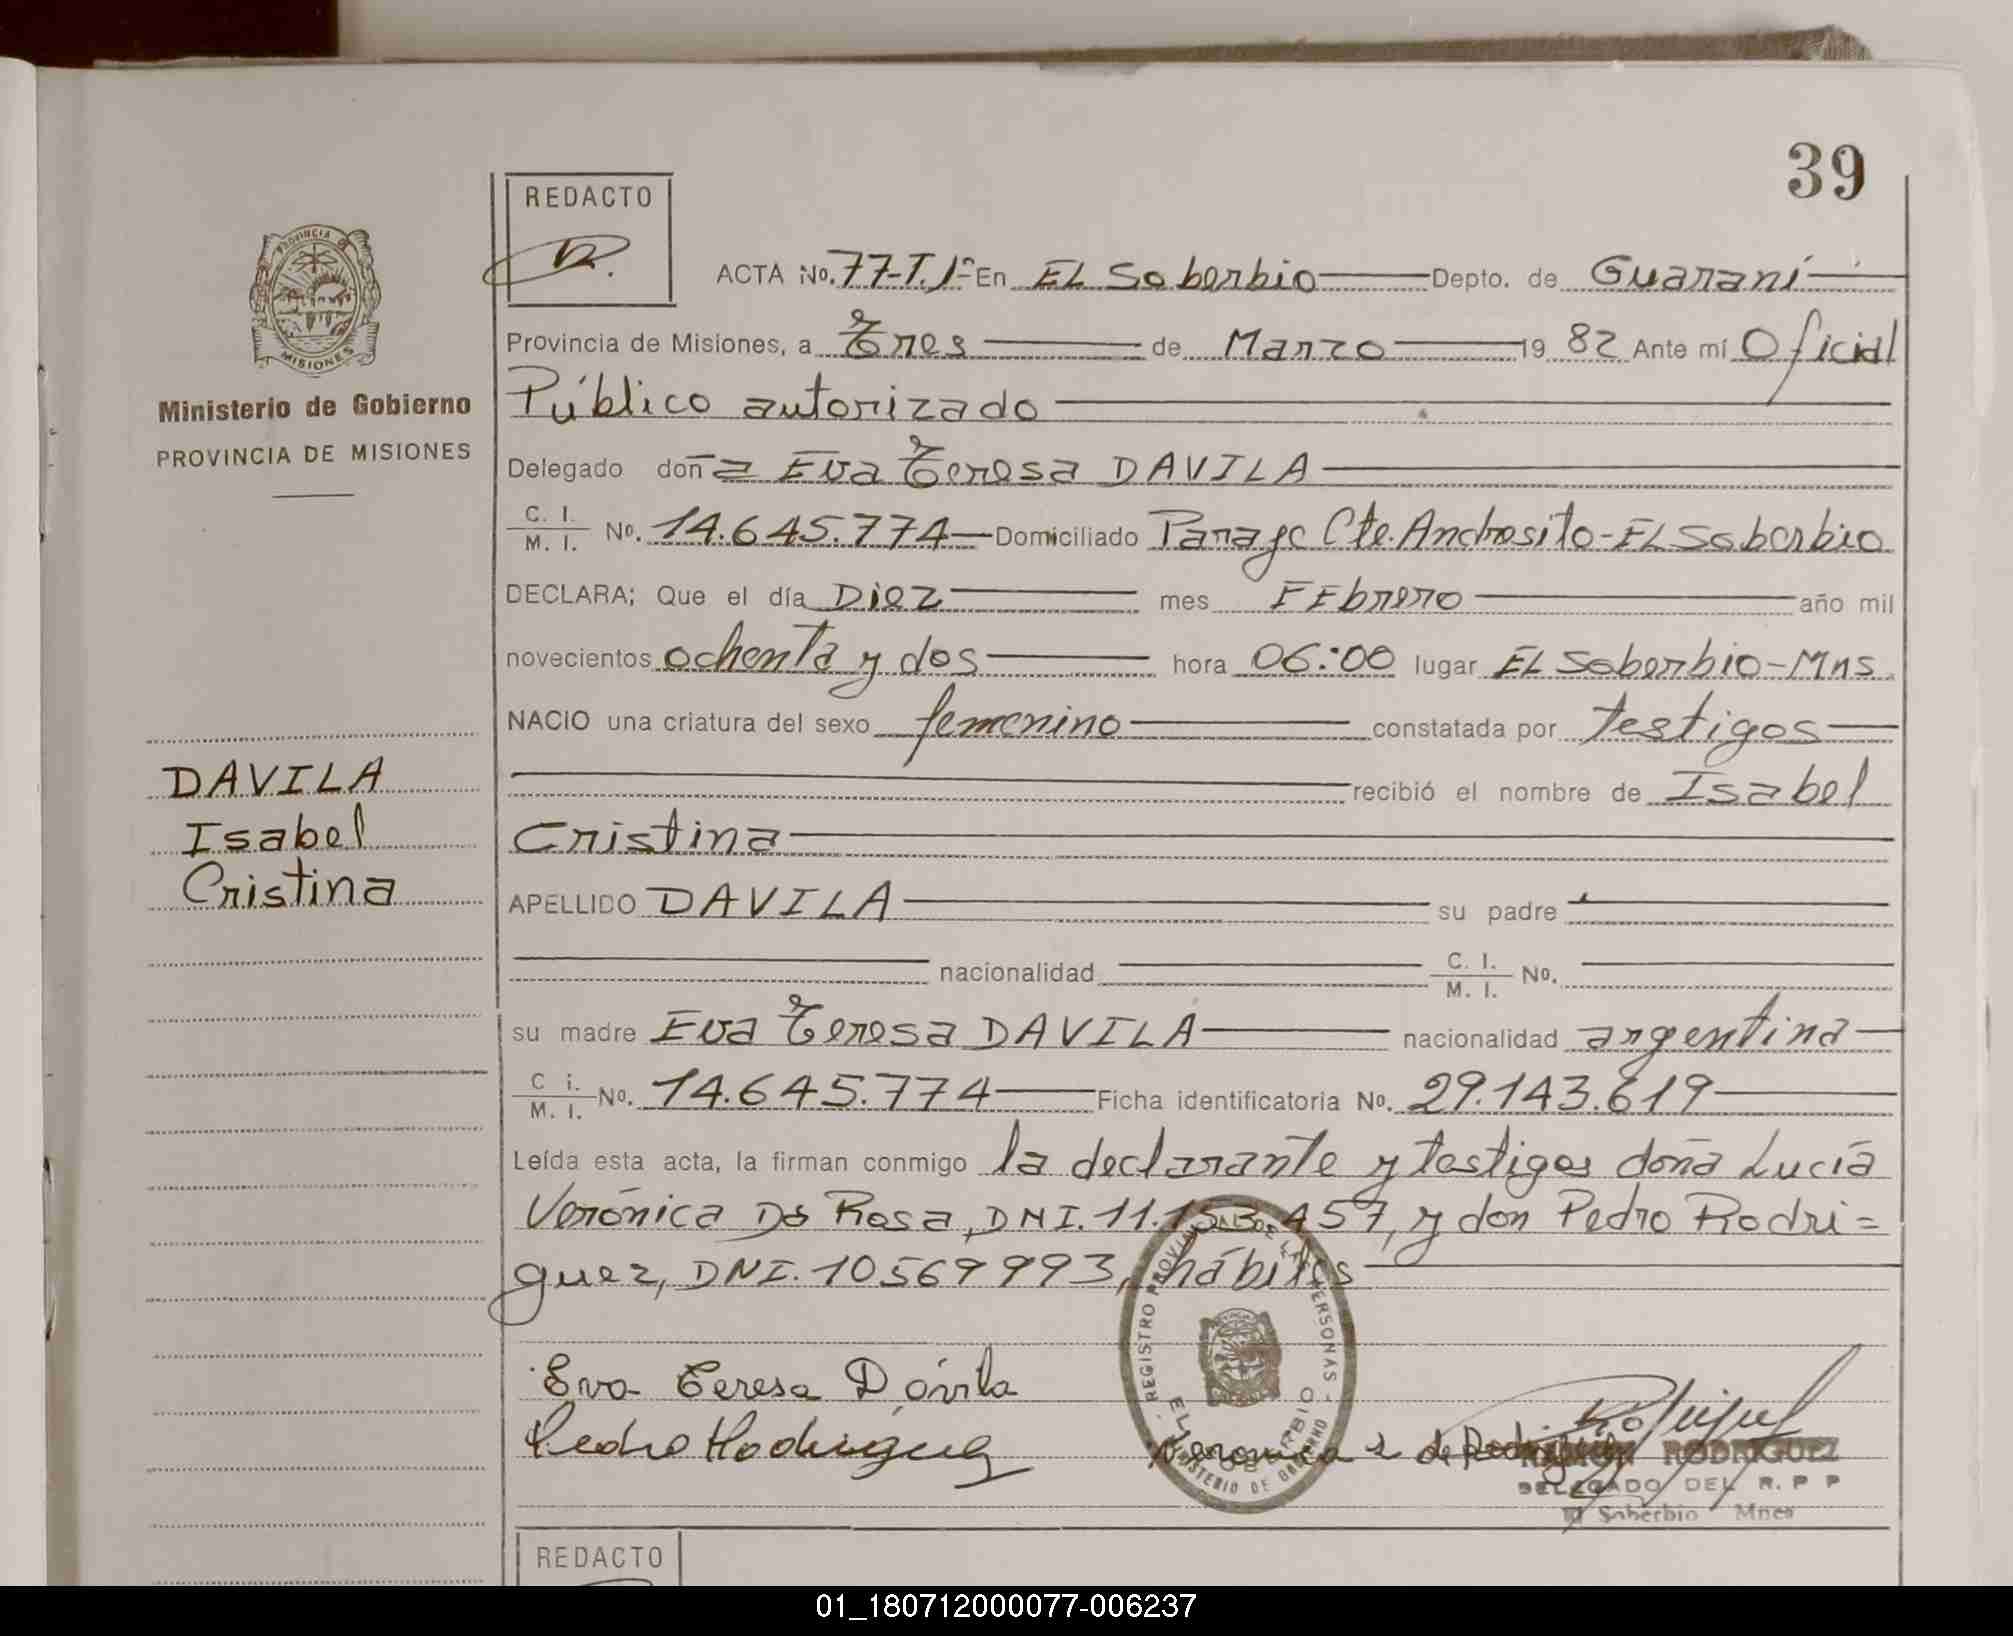 39
REDACTO
PROVINCIA DE
MISIONES
Ministerio de Gobierno
PROVINCIA DE MISIONES
ACTA No. 77-T.1º En EL Soberbio Depto. de Guaraní
Provincia de Misiones, a Tres de Marzo 19 82 Ante mí Oficial
Público autorizado
Delegado doña Eva Teresa DAVILA
C. I. / M. I. No. 14.645.774 Domiciliado Paraje Cte. Andresito - EL Soberbio
DECLARA; Que el día Diez mes FEbrero año mil
novecientos ochenta y dos hora 06:00 lugar EL Soberbio - Mns.
NACIO una criatura del sexo femenino constatada por testigos
recibió el nombre de Isabel
Cristina
DAVILA
Isabel
Cristina
APELLIDO DAVILA su padre
nacionalidad C. I. / M. I. No.
su madre Eva Teresa DAVILA nacionalidad argentina
C i. / M. I. No. 14.645.774 Ficha identificatoria No. 29.143.619
Leída esta acta, la firman conmigo la declarante y testigos doña Lucía
Verónica Da Rosa, DNI. 11.153.457, y don Pedro Rodri=
guez, DNI. 10569993, hábiles
REGISTRO PROVINCIAL DE LAS PERSONAS
EL SOBERBIO
MINISTERIO DE GOBIERNO
Eva Teresa Dávila
Pedro Rodriguez
Veronica L de Rodriguez
RAMON RODRIGUEZ
DELEGADO DEL R. P P
El Soberbio Mnes
REDACTO
01_180712000077-006237